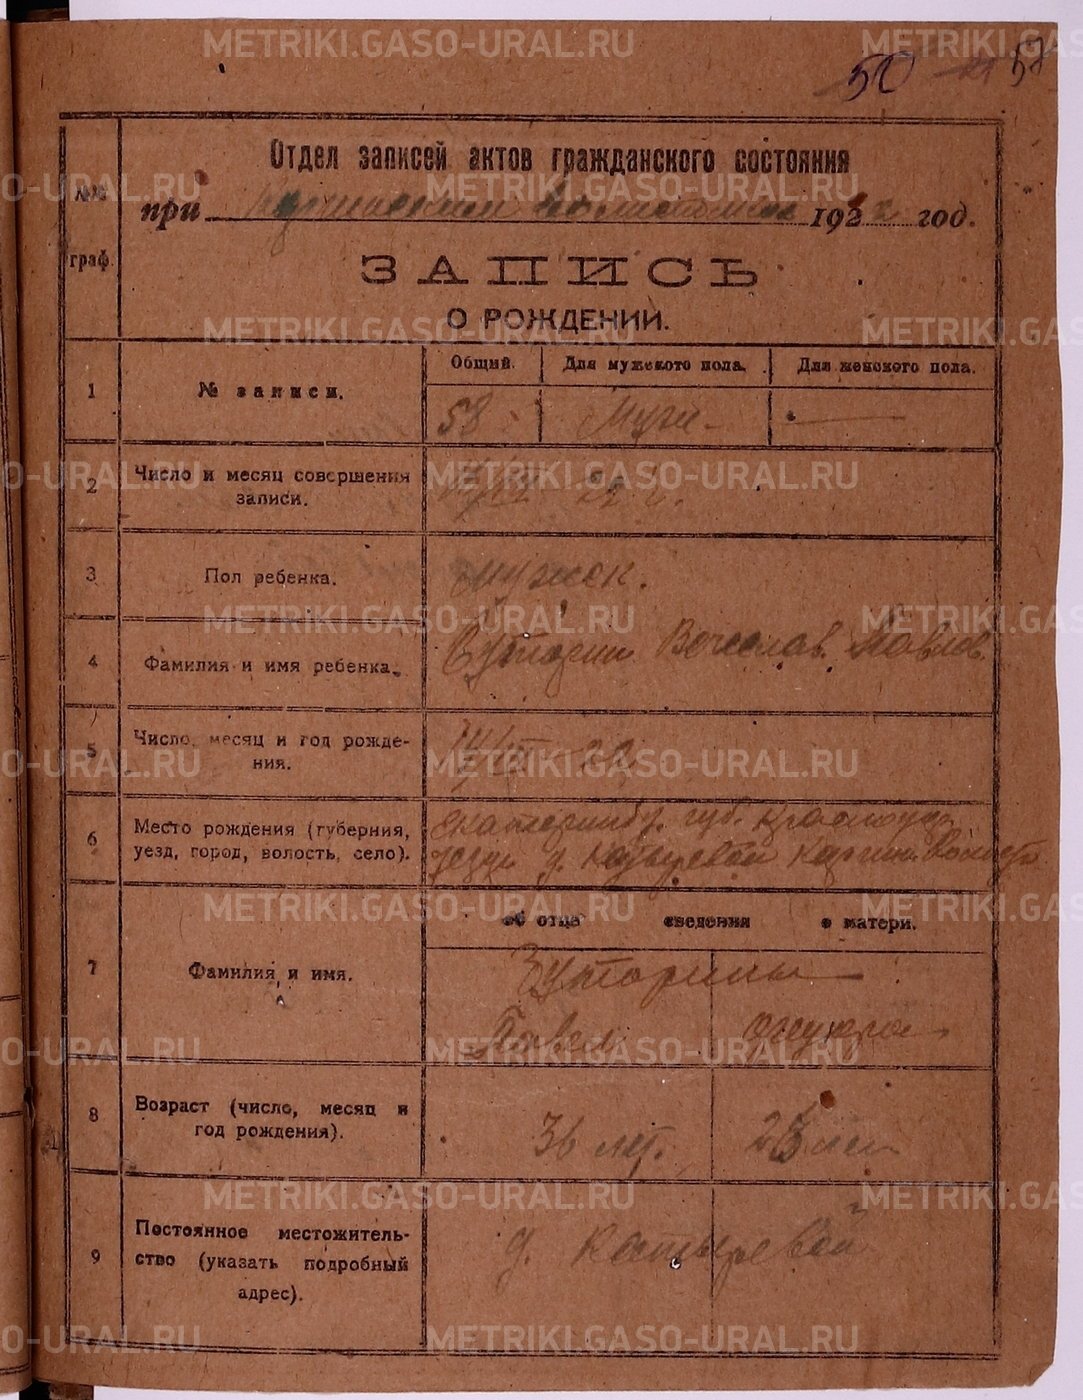 METRIKI.GASO-URAL.RU
50 58
№№ граф.
Отдел записей актов гражданского состояния
при 1922 год.
ЗАПИСЬ
О РОЖДЕНИИ.
1
№ записи.
Общий. Для мужского пола. Для женского пола.
58 Муж -
2
Число и месяц совершения
записи.
22 г.
3
Пол ребенка.
мужск.
4
Фамилия и имя ребенка.
Буторин Вечеслав. Павлов.
5
Число, месяц и год рожде-
ния.
22
6
Место рождения (губерния,
уезд, город, волость, село).
Екатеринбу. губ. Красноуф.
уезда д.
7
Фамилия и имя.
об отце сведения о матери.
Буторины
Павел
8
Возраст (число, месяц и
год рождения).
36 лет.
9
Постоянное местожитель-
ство (указать подробный
адрес).
д.